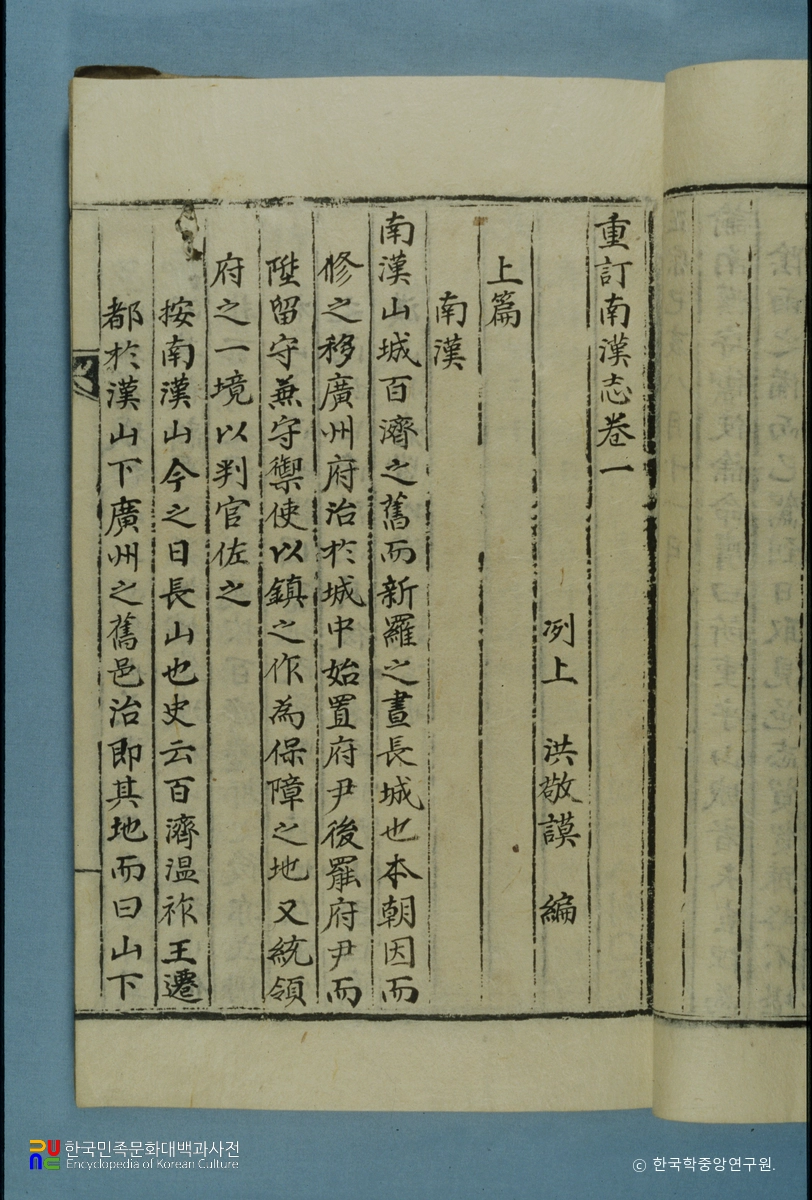 重訂南漢志卷一
洌上 洪敬謨 編
上篇
南漢
南漢山城百濟之舊而新羅之晝長城也本朝因而
修之移廣州府治於城中始置府尹後罷府尹而
陞留守兼守禦使以鎮之作為保障之地又統領
府之一境以判官佐之
按南漢山今之日長山也史云百濟温祚王遷
都於漢山下廣州之舊邑治即其地而曰山下
한국민족문화대백과사전
Encyclopedia of Korean Culture
© 한국학중앙연구원.